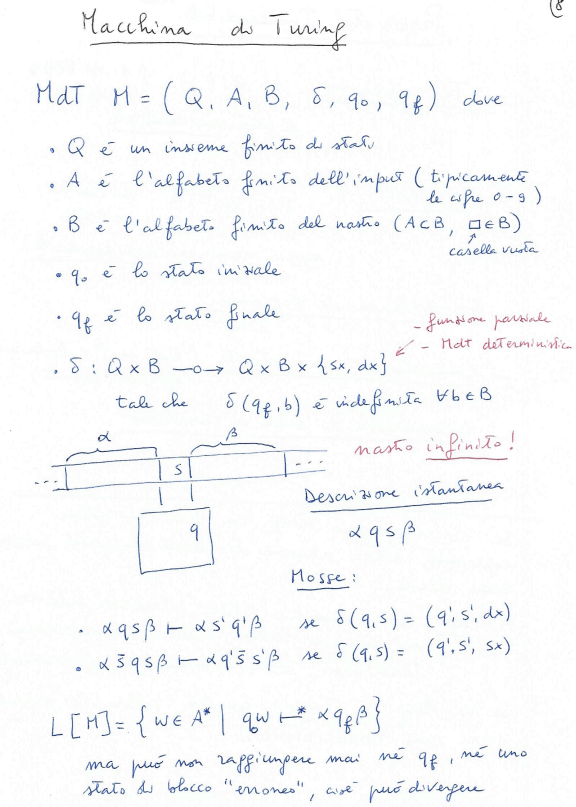 (8
Macchina di Turing
MdT M = ( Q, A, B, δ, q₀, q_f ) dove
• Q è un insieme finito di stati
• A è l'alfabeto finito dell'input ( tipicamente
le cifre 0-9 )
• B è l'alfabeto finito del nastro (A⊂B, □∈B)
casella vuota
• q₀ è lo stato iniziale
• q_f è lo stato finale
- funzione parziale
- MdT deterministica
• δ : Q × B —o→ Q × B × {sx, dx}
tale che δ(q_f, b) è indefinita ∀b∈B
α β
nastro infinito!
... s ...
Descrizione istantanea
q
α q s β
Mosse:
• α q s β ⊢ α s' q' β se δ(q,s) = (q', s', dx)
• α s̄ q s β ⊢ α q' s̄ s' β se δ(q,s) = (q', s', sx)
L[M] = { w ∈ A* | q₀w ⊢* α q_f β }
ma può non raggiungere mai né q_f, né uno
stato di blocco "erroneo", cioè può divergere